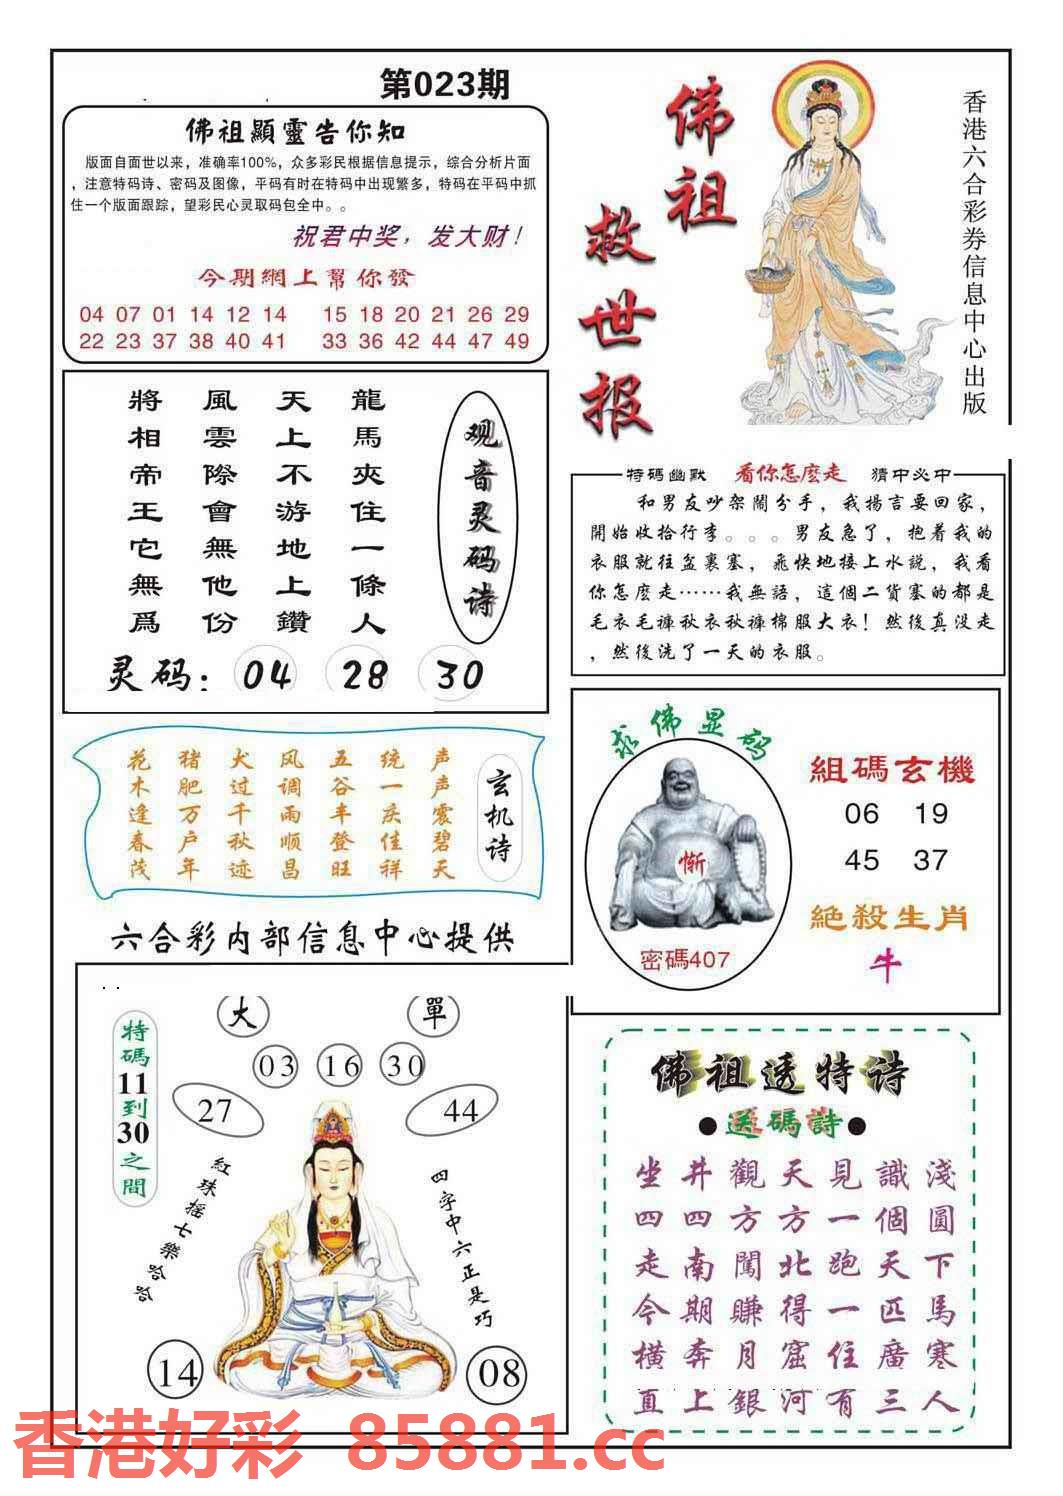 第023期
佛祖顯靈告你知
版面自面世以来，准确率100%，众多彩民根据信息提示，综合分析片面
，注意特码诗、密码及图像，平码有时在特码中出现繁多，特码在平码中抓
住一个版面跟踪，望彩民心灵取码包全中。。
祝君中奖，发大财！
今期網上幫你發
04 07 01 14 12 14 15 18 20 21 26 29
22 23 37 38 40 41 33 36 42 44 47 49
佛祖
救世报
香港六合彩券信息中心出版
將 風 天 龍
相 雲 上 馬
帝 際 不 夾
王 會 游 住
它 無 地 一
無 他 上 條
爲 份 鑽 人
观音灵码诗
灵码：04 28 30
特碼幽默 看你怎麼走 猜中必中
和男友吵架鬧分手，我揚言要回家，
開始收拾行李。。。男友急了，抱着我的
衣服就往盆裏塞，飛快地接上水説，我看
你怎麼走……我無語，這個二貨塞的都是
毛衣毛褲秋衣秋褲棉服大衣！然後真没走
，然後洗了一天的衣服。
花 猪 犬 风 五 统 声
木 肥 过 调 谷 一 声
逢 万 千 雨 丰 庆 震
春 户 秋 顺 登 佳 碧
茂 年 迹 昌 旺 祥 天
玄机诗
求佛显码
慚
密碼407
組碼玄機
06 19
45 37
絕殺生肖
牛
六合彩内部信息中心提供
特碼11到30之間
大 單
03 16 30
27 44
紅珠摇七樂哈哈
四字中六正是巧
14 08
佛祖透特诗
●送碼詩●
坐 井 觀 天 見 識 淺
四 四 方 方 一 個 圓
走 南 闖 北 跑 天 下
今 期 賺 得 一 匹 馬
橫 奔 月 窟 住 廣 寒
直 上 銀 河 有 三 人
香港好彩 85881.cc